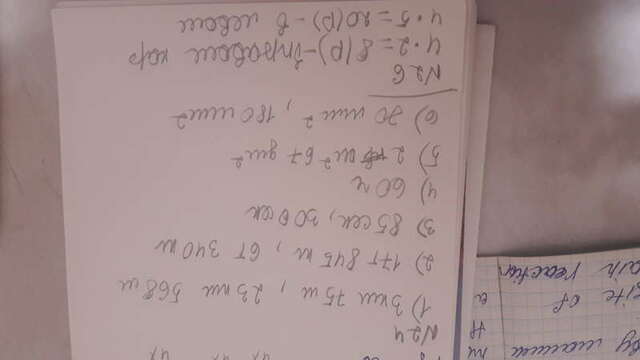 N24
1) 3км 75м, 23км 568м
2) 17т 845кг, 6т 340кг
3) 85сек, 300сек
4) 60ч
5) 2 м² 67 дм²
6) 70 мм², 180мм²
N26
4·2=8(р)-в правом кар
4·5=20(р)-в левом
ву машина
site of a
air reaction